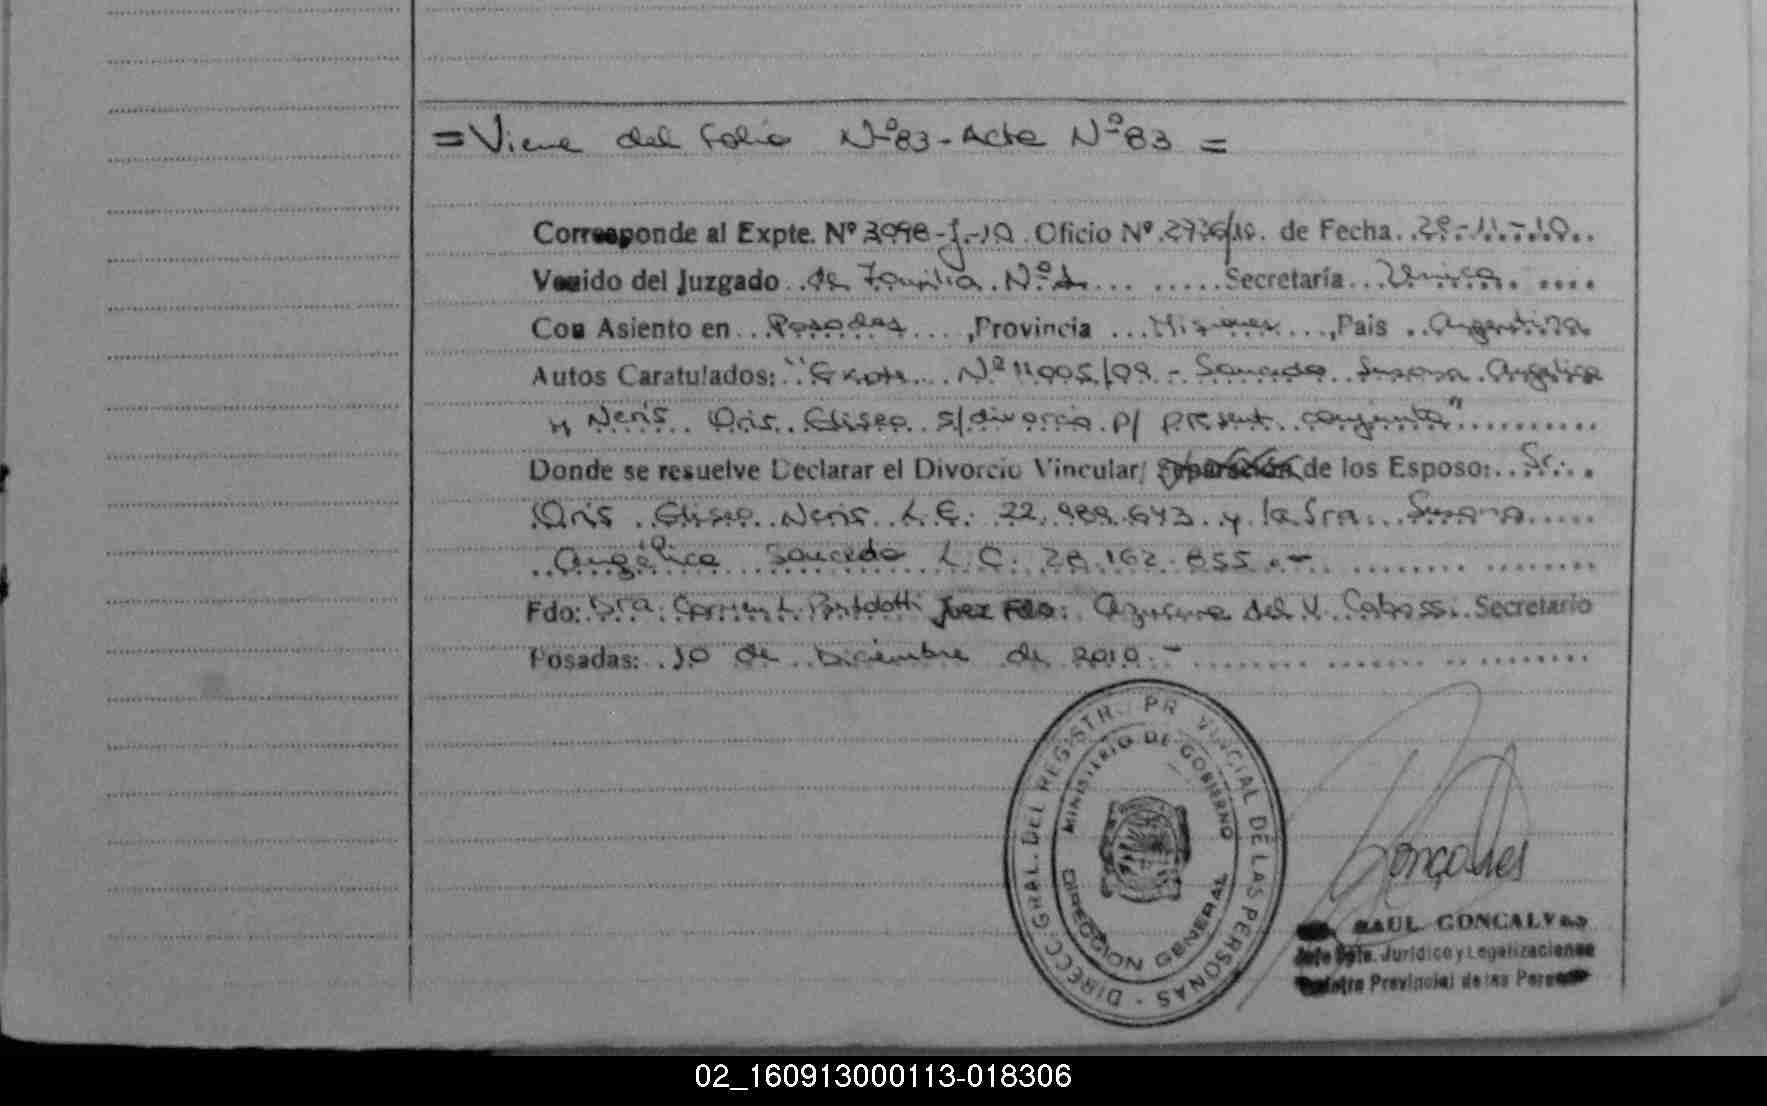 = Viene del folio Nº 83 - Acta Nº 83 =
Corresponde al Expte. Nº 3998-J-10 Oficio Nº 2736/10. de Fecha 29-11-10
Venido del Juzgado de Familia Nº 1 Secretaría Unica
Con Asiento en Posadas, Provincia Misiones, País Argentina
Autos Caratulados: "Expte. Nº 11005/09 - Saucedo Susana Angelica
y Neris Oris Eliseo s/divorcio p/ present. conjunta"
Donde se resuelve Declarar el Divorcio Vincular/ Separación de los Esposo: Sr.
Oris Eliseo Neris L.E: 22.989.643 y la Sra. Susana
Angélica Saucedo L.C. 28.162.855.-
Fdo: Dra. L. Juez Fdo: Azucena del V. Secretario
Posadas: 10 de Diciembre de 2010.-
DIRECC. GRAL. DEL REGISTR. PR VINCIAL DE LAS PERSONAS
MINISTERIO DE GOBIERNO
DIRECCION GENERAL
Goncalves
RAUL GONCALVES
Jefe Dpto. Jurídico y Legalizaciones
Registro Provincial de las Personas
02_160913000113-018306